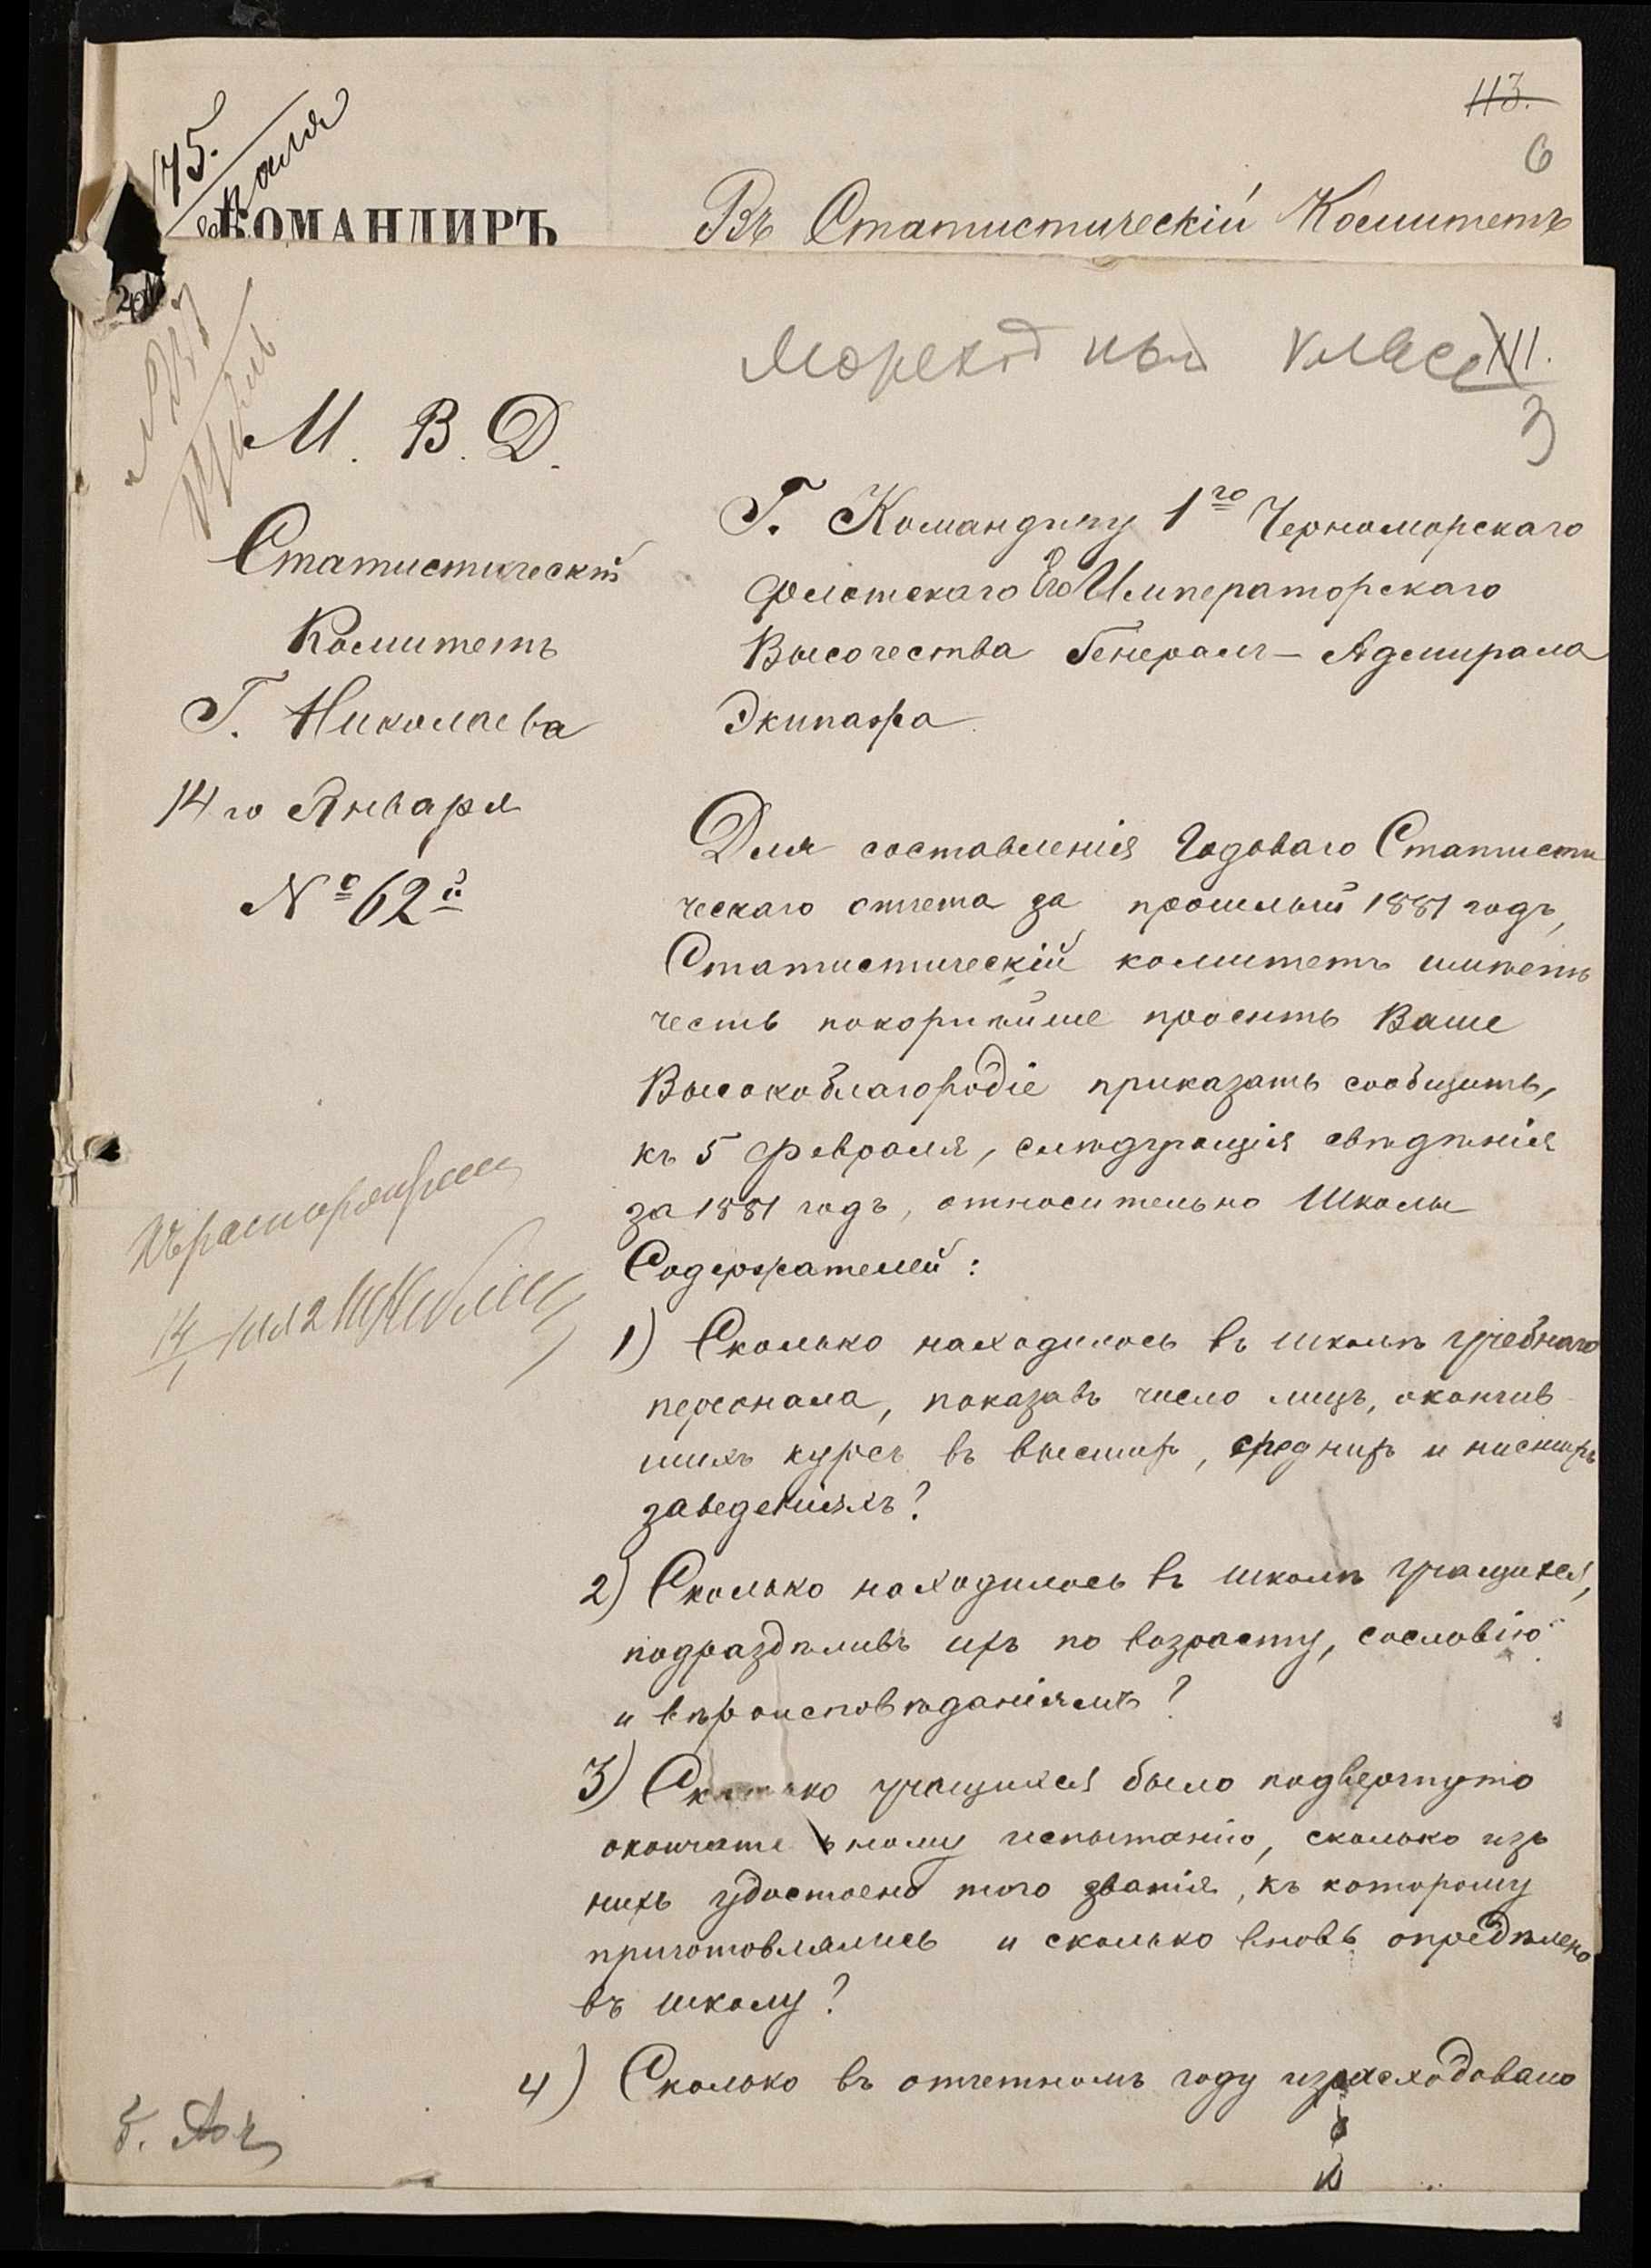 113.
6
175.
КОМАНДИРЪ
Въ Статистическій Комитетъ
Мореход ный класс
111.
3
М. В. Д.
Статистическій
Комитетъ
Г. Николаева
14 го Января
№ 62й
Г. Командиру 1го Черноморскаго
Флотскаго Его Императорскаго
Высочества Генералъ-Адмирала
Экипажа
Для составленія Годоваго Статисти
ческаго отчета за прошлый 1881 годъ,
Статистическій комитетъ имѣетъ
честь покорнѣйше просить Ваше
Высокоблагородіе приказать сообщить,
къ 5 Февраля, слѣдующія свѣдѣнія
за 1881 годъ, относительно Школы
Содержателей:
1) Сколько находилось въ школѣ учебнаго
персонала, показавъ число лицъ, окончив
шихъ курсъ въ высшихъ, среднихъ и нисшихъ
заведеніяхъ?
2) Сколько находилось въ школѣ учащихся,
подраздѣливъ ихъ по возрасту, сословію
и вѣроисповѣданіямъ?
3) Сколько учащихся было подвергнуто
окончательному испытанію, сколько изъ
нихъ удостоено того званія, къ которому
приготовлялись и сколько вновь опредѣлено
въ школу?
4) Сколько въ отчетномъ году израсходовано